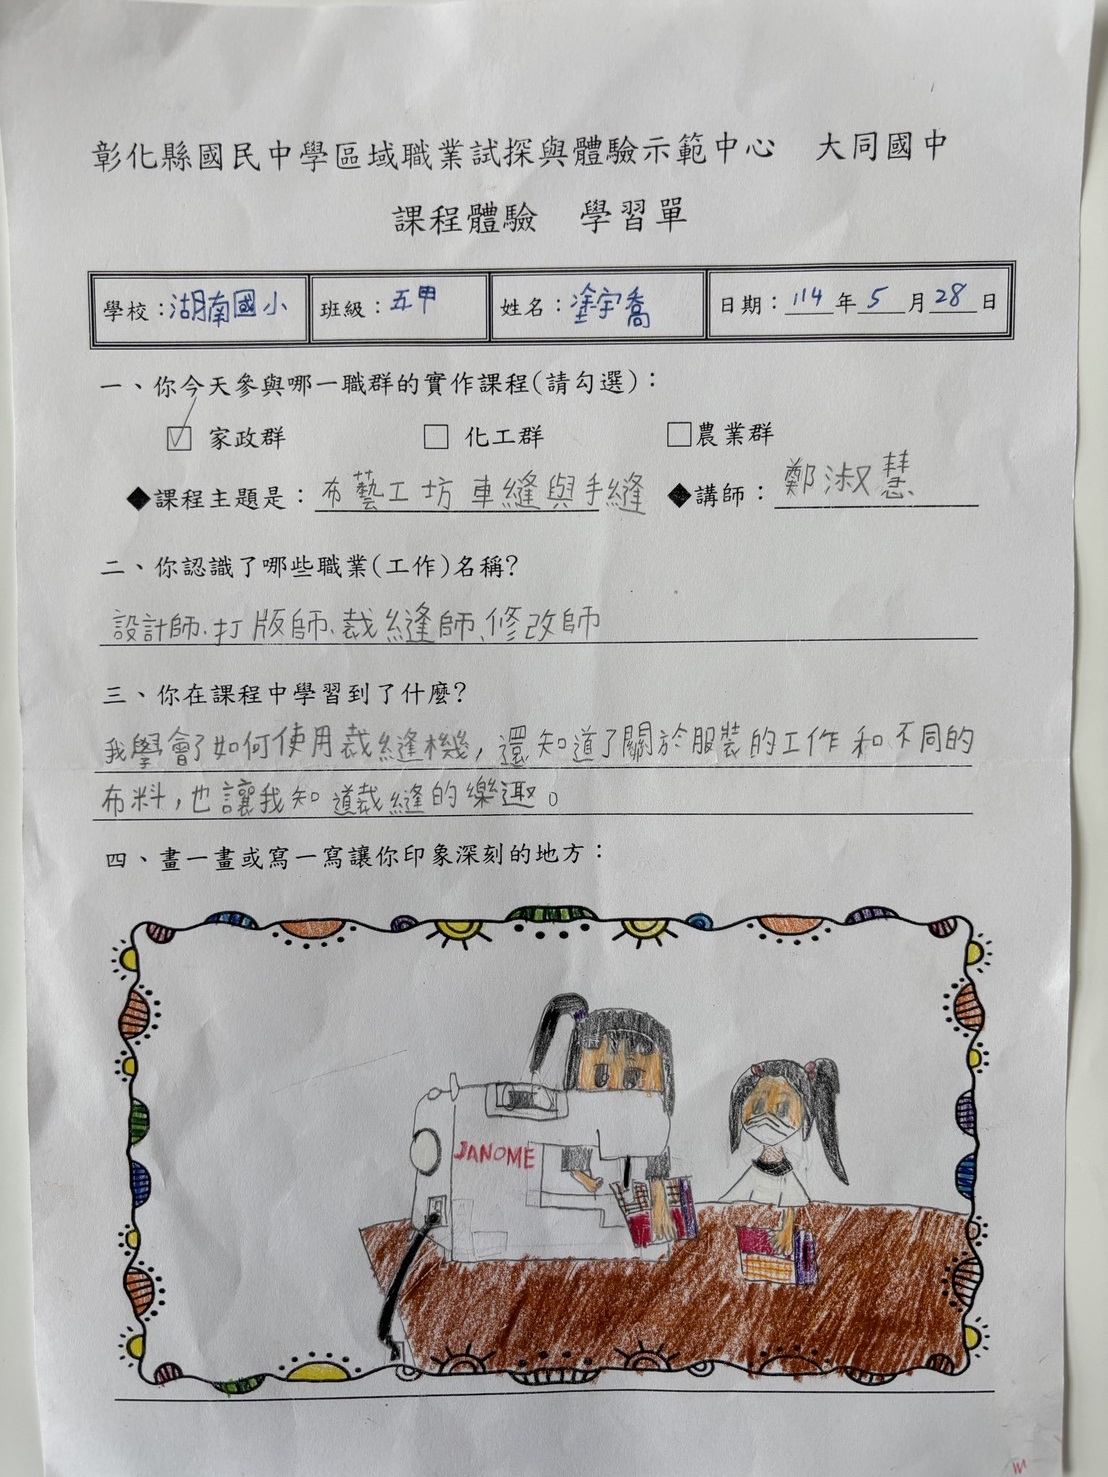 彰化縣國民中學區域職業試探與體驗示範中心　大同國中
課程體驗　學習單
學校：湖南國小 班級：五甲 姓名：塗宇喬 日期：114年5月28日
一、你今天參與哪一職群的實作課程(請勾選)：
☑ 家政群 □ 化工群 □農業群
◆課程主題是：布藝工坊 車縫與手縫 ◆講師：鄭淑慧
二、你認識了哪些職業(工作)名稱?
設計師、打版師、裁縫師、修改師
三、你在課程中學習到了什麼?
我學會了如何使用裁縫機，還知道了關於服裝的工作和不同的
布料，也讓我知道裁縫的樂趣。
四、畫一畫或寫一寫讓你印象深刻的地方：
JANOME